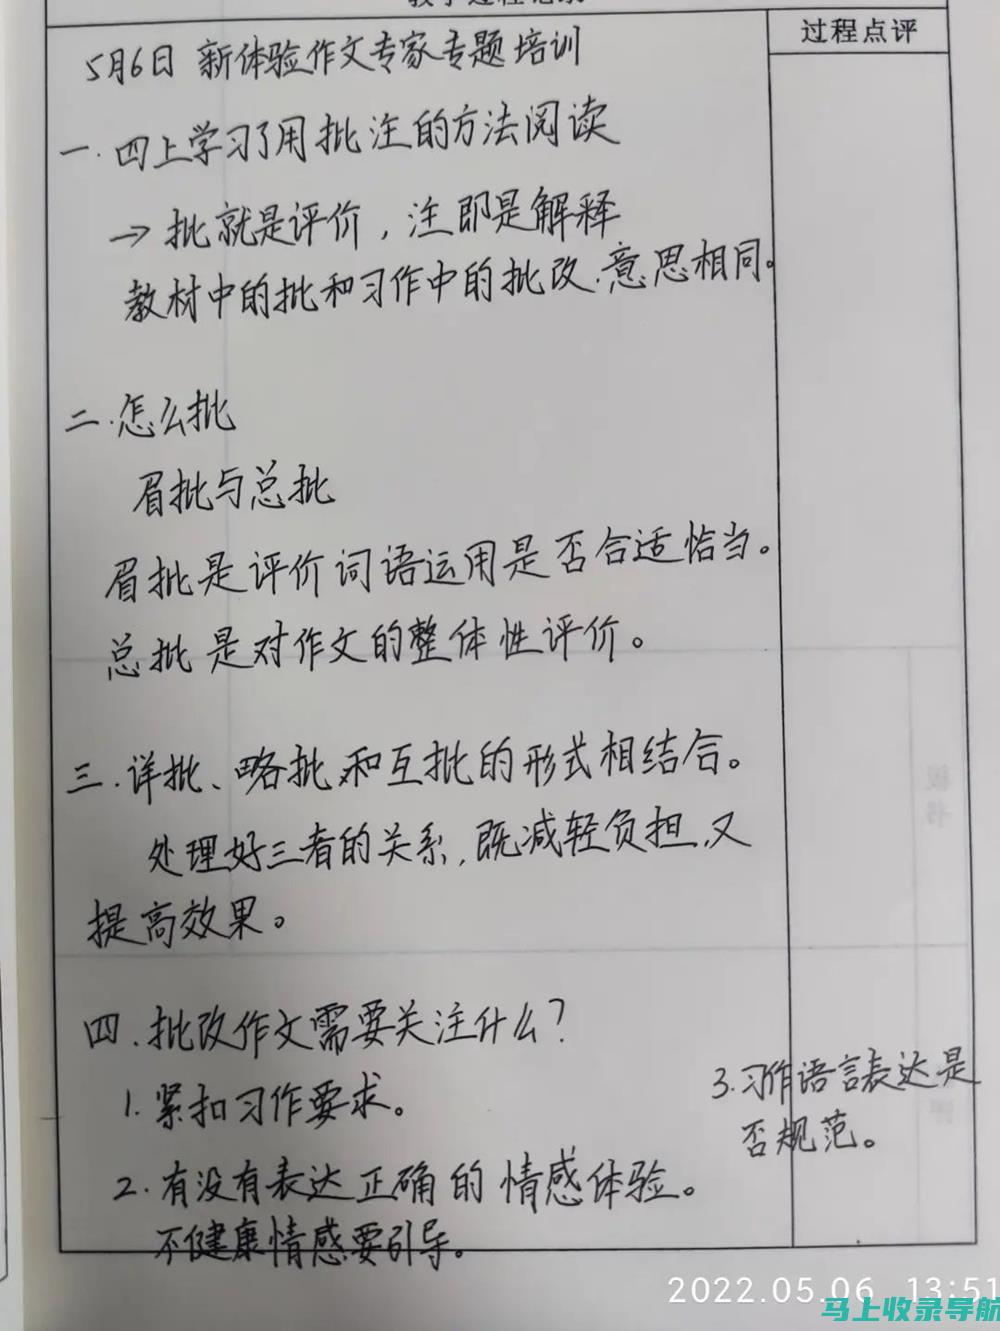 教学过程记录
过程点评
5月6日 新体验作文专家专题培训
一.四上学习了用批注的方法阅读
→批就是评价，注即是解释
教材中的批和习作中的批改.意思相同。
二.怎么批
眉批与总批
眉批是评价词语运用是否合适恰当。
总批是对作文的整体性评价。
三.详批、略批和互批的形式相结合。
处理好三者的关系,既减轻负担,又
提高效果。
四.批改作文需要关注什么？
1.紧扣习作要求。
2.有没有表达正确的情感体验。
不健康情感要引导。
3.习作语言表达是
否规范。
2022.05.06 13:51
马上收录导航